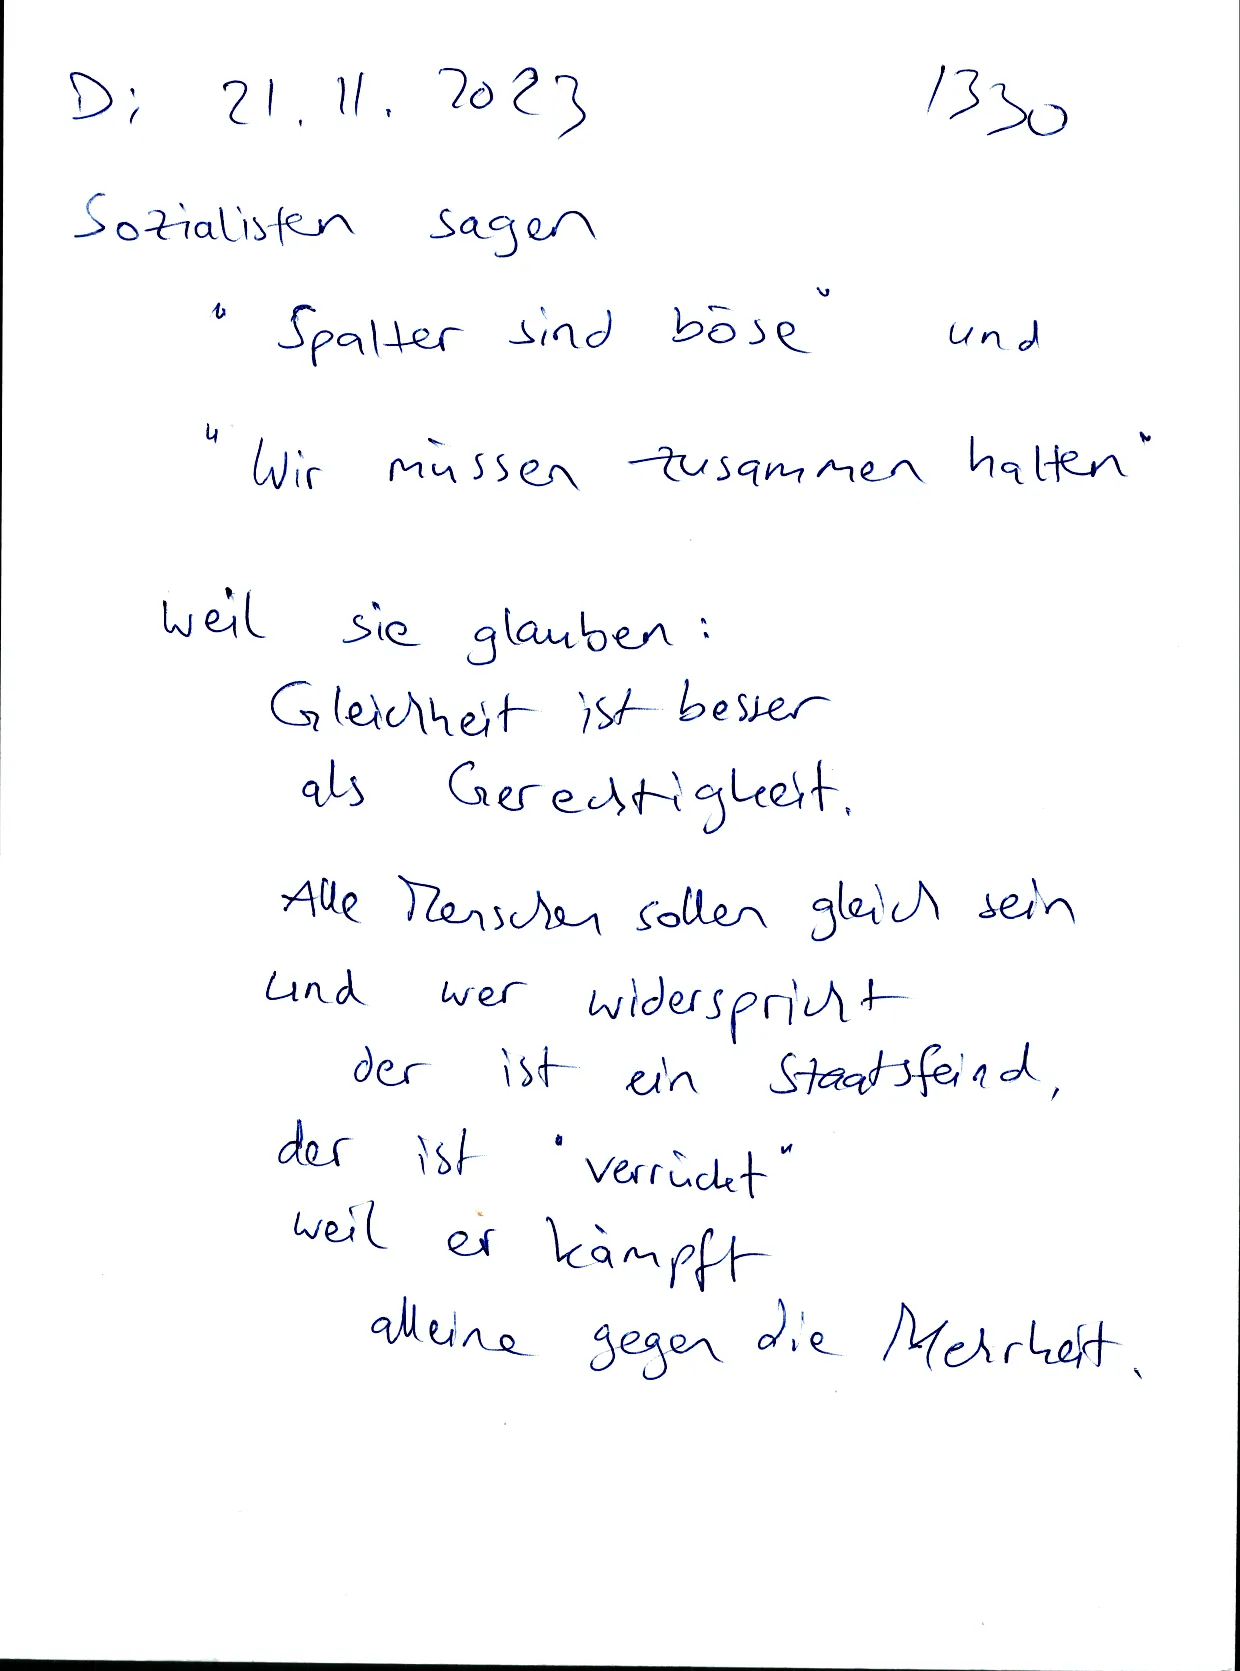 Di 21.11.2023 1330
Sozialisten sagen
"Spalter sind böse" und
"Wir müssen zusammen halten"
weil sie glauben:
Gleichheit ist besser
als Gerechtigkeit.
Alle Menschen sollen gleich sein
und wer widerspricht
der ist ein Staatsfeind,
der ist "verrückt"
weil er kämpft
alleine gegen die Mehrheit.